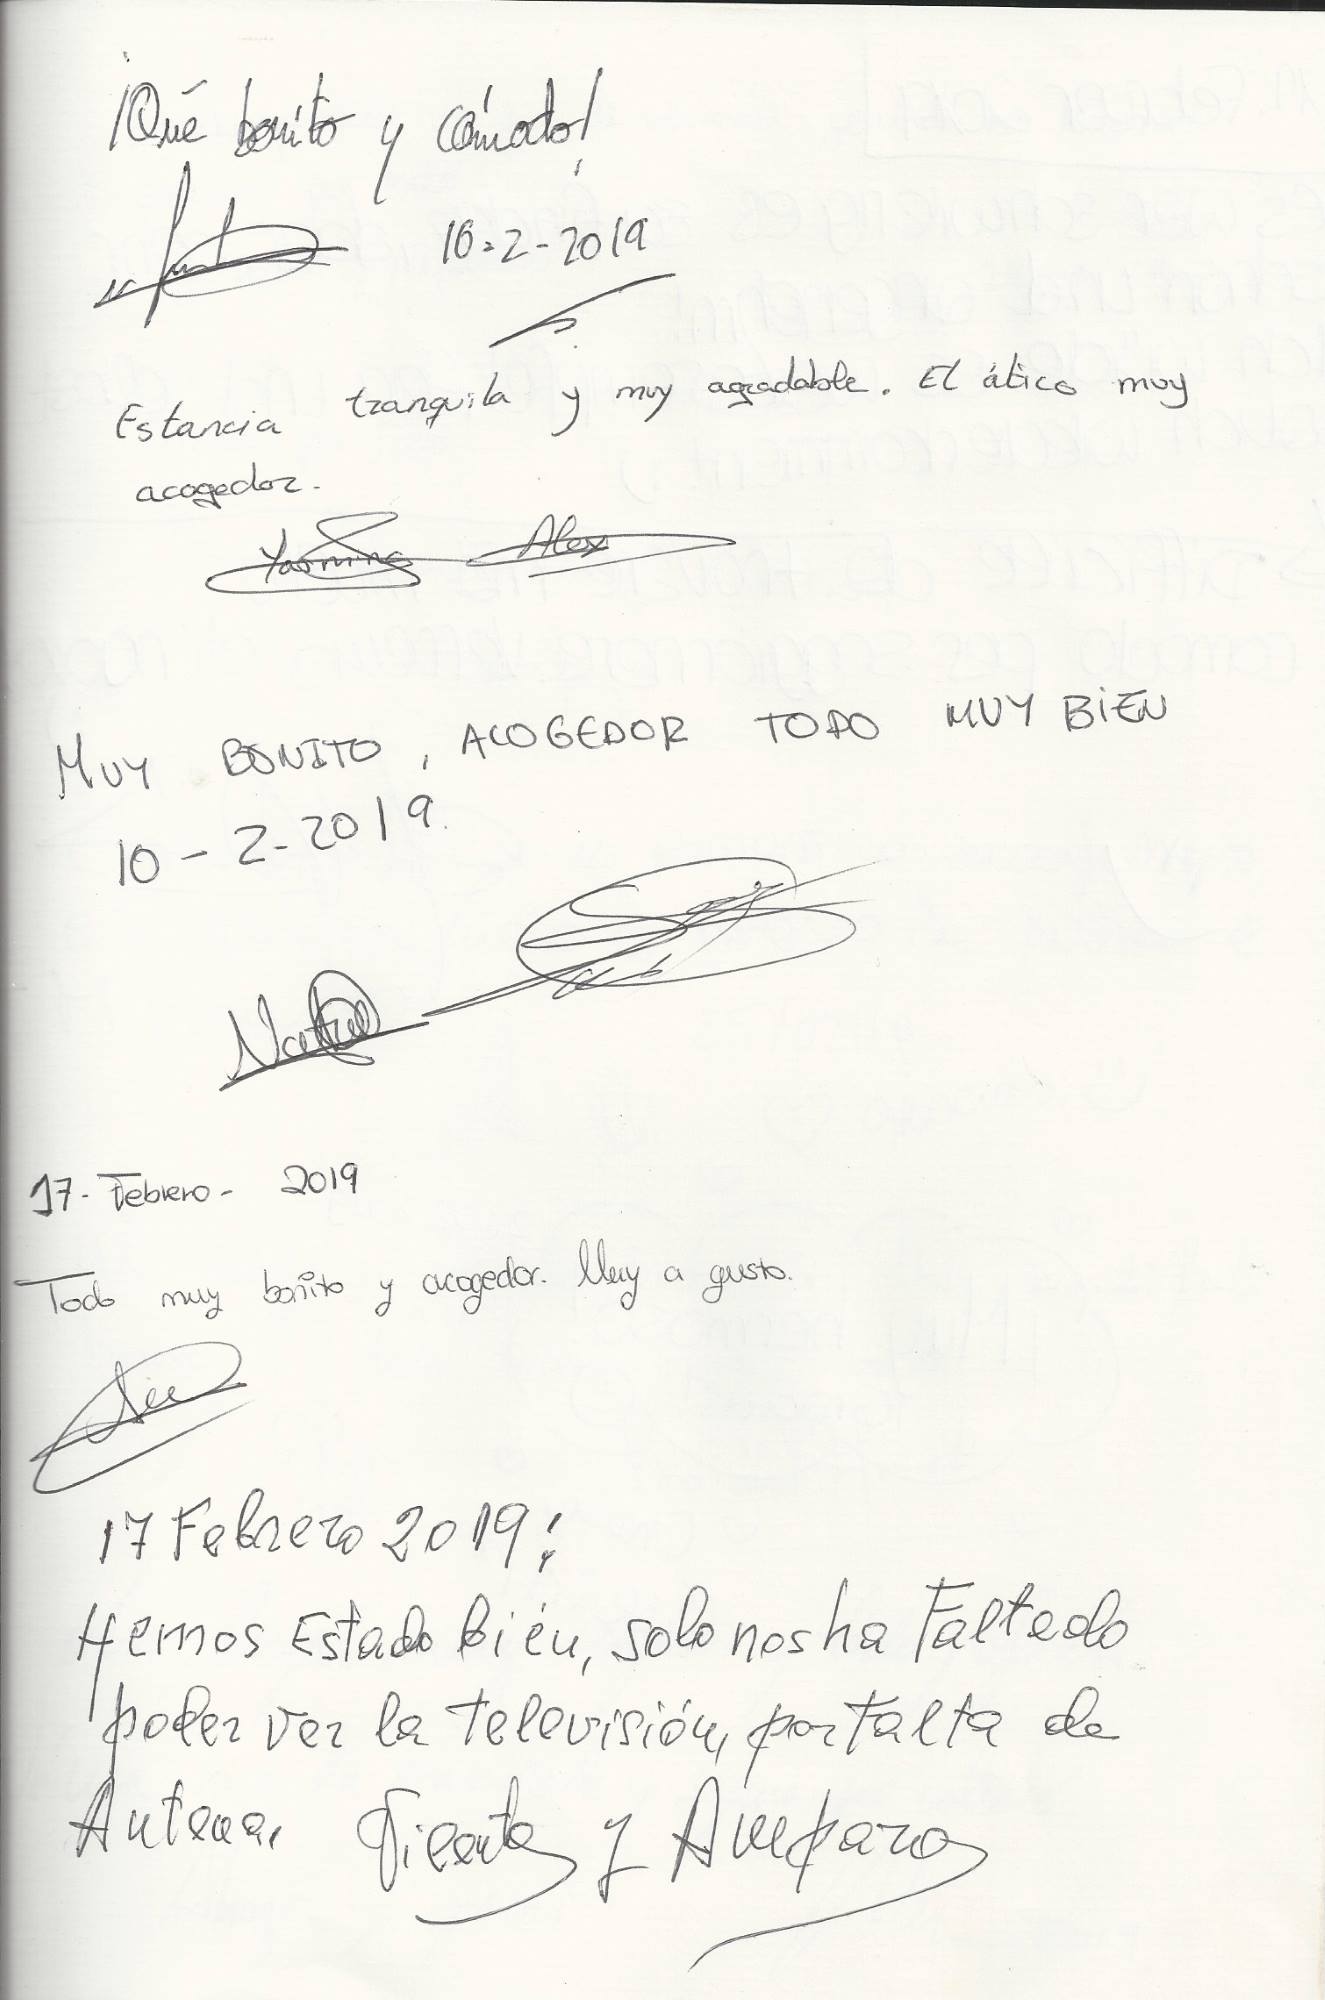 ¡Qué bonito y cómodo!
10-2-2019
Estancia tranquila y muy agradable. El ático muy
acogedor.
Yasmina Alex
MUY BONITO, ACOGEDOR TODO MUY BIEN
10-2-2019.
17- Febrero- 2019
Todo muy bonito y acogedor. Muy a gusto.
17 Febrero 2019;
Hemos Estado bién, solo nos ha Faltado
poder ver la televisión, por Falta de
Antena. Vicente y Amparo